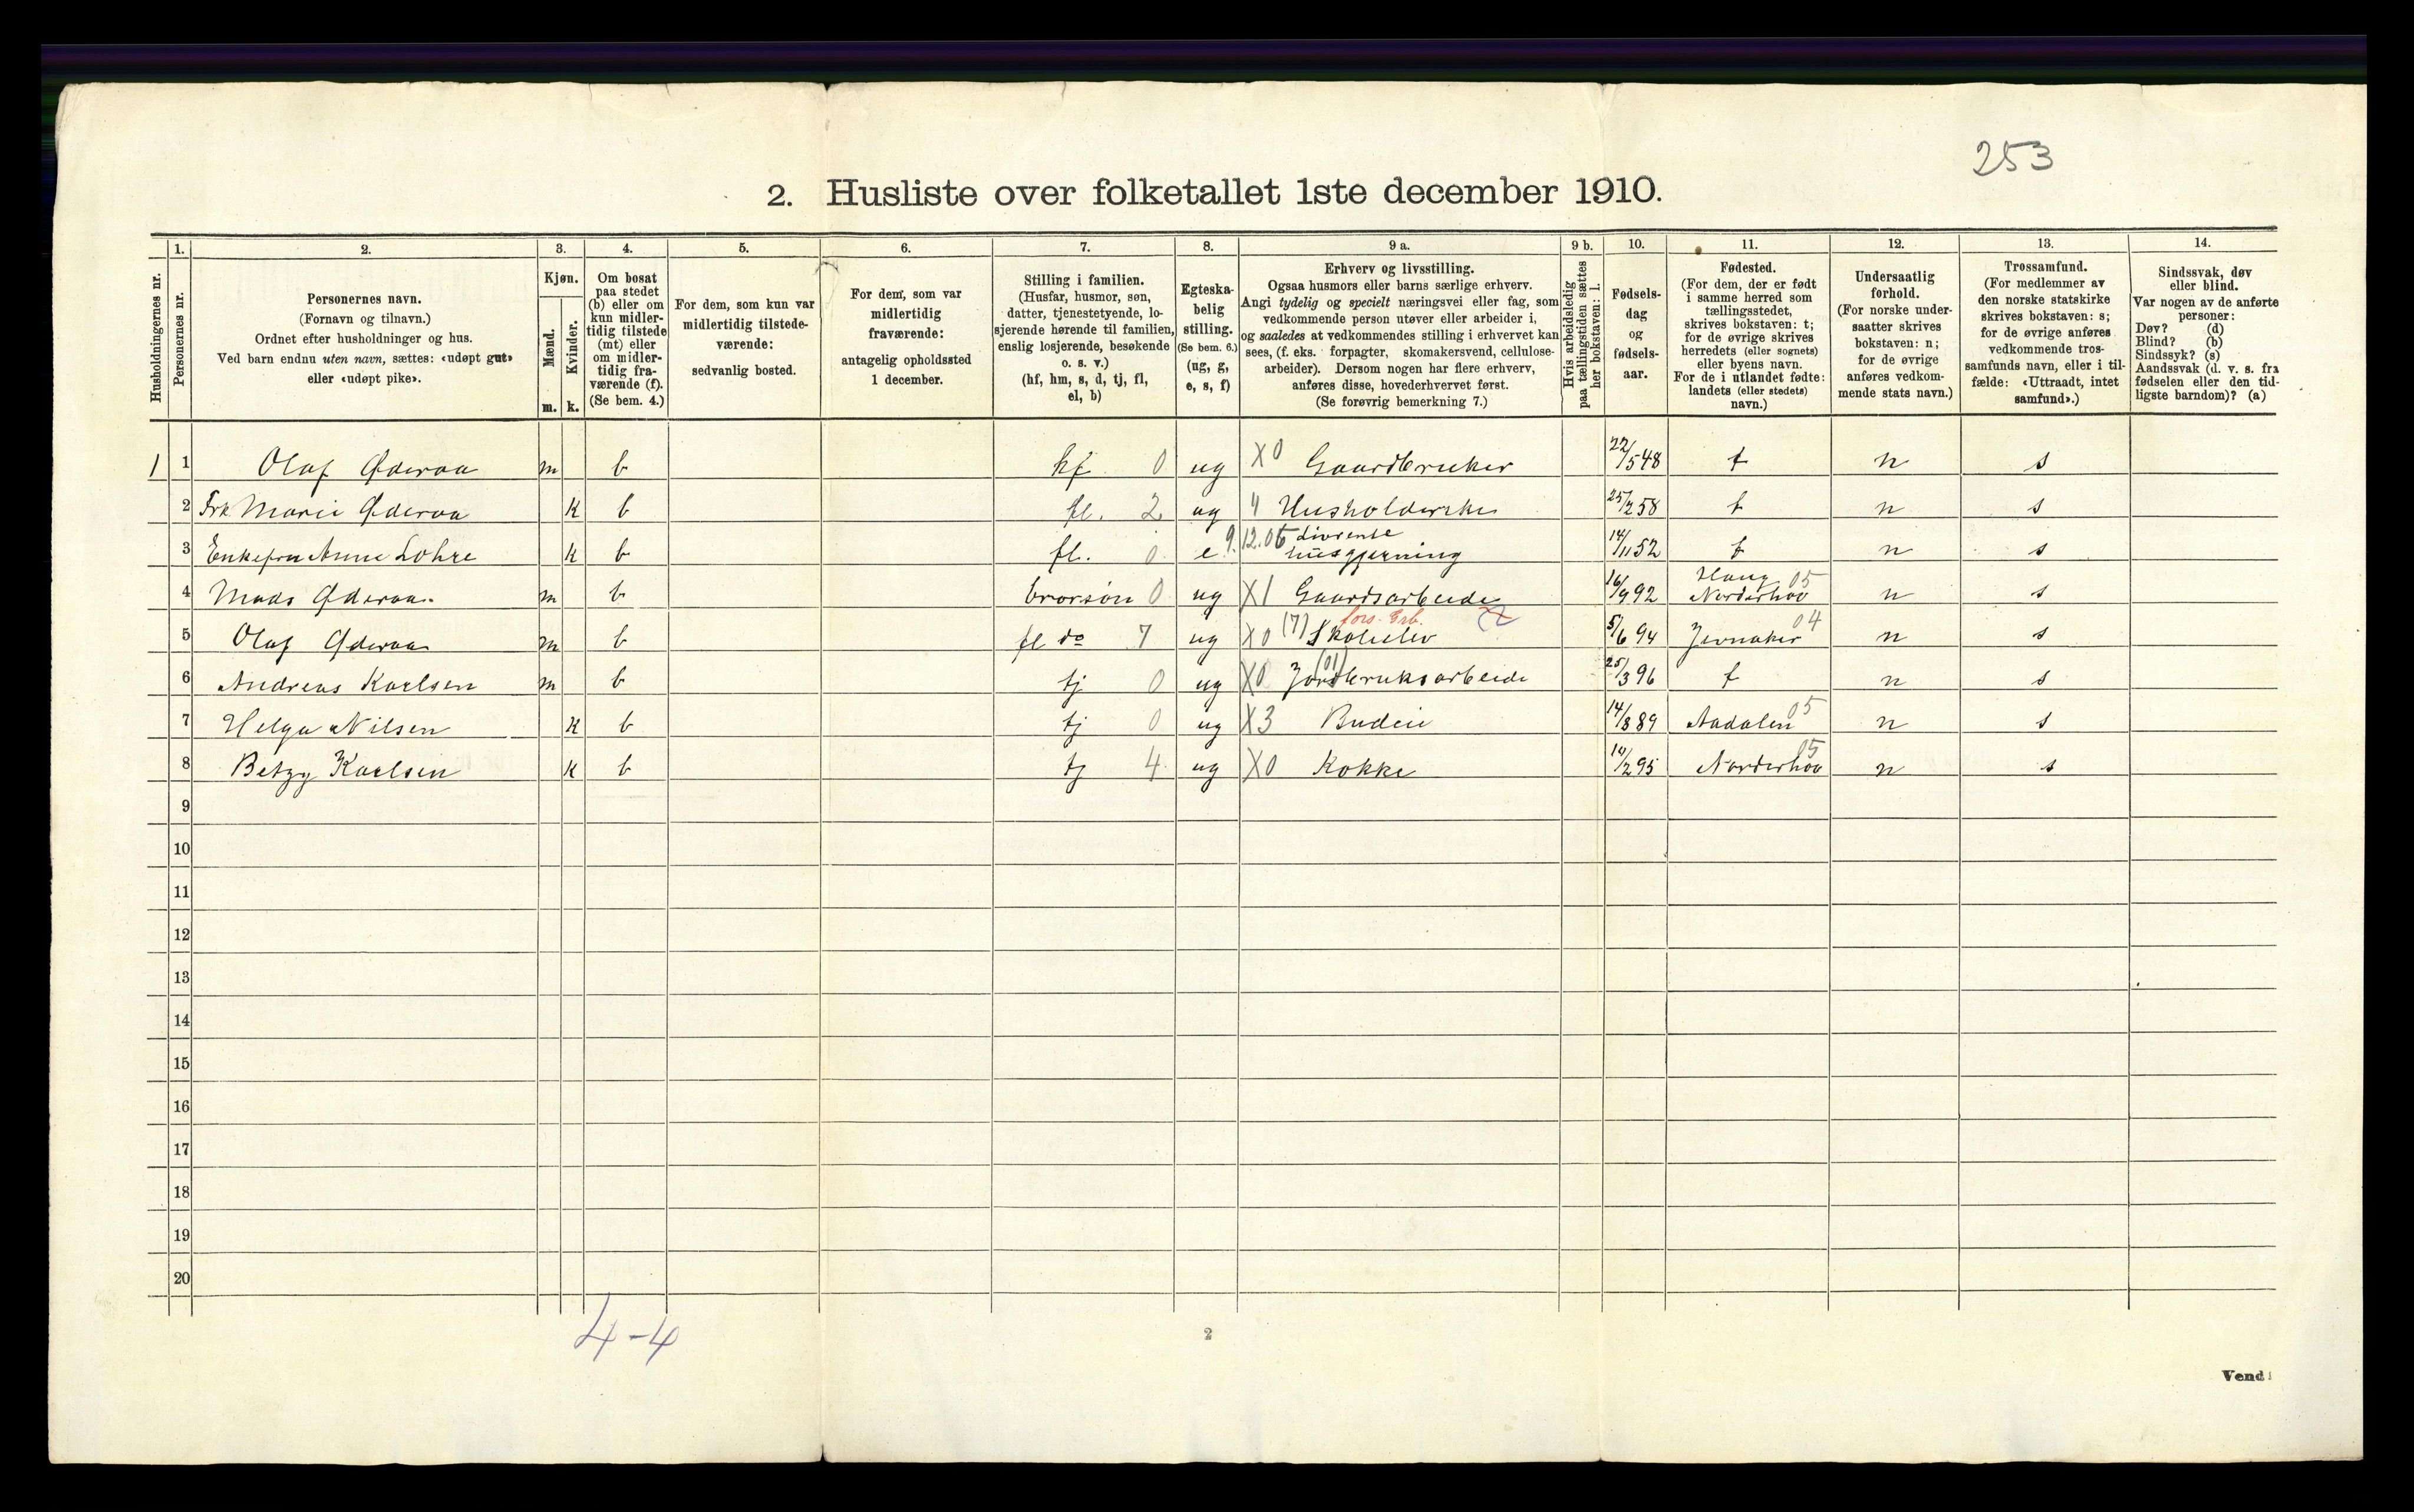 253
2. Husliste over folketallet 1ste december 1910.
Husholdningernes nr.
1.
Personernes nr.
2.
Personernes navn.
(Fornavn og tilnavn.)
Ordnet efter husholdninger og hus.
Ved barn endnu uten navn, sættes: «udøpt gut»
eller «udøpt pike».
3.
Kjøn.
Mænd.
Kvinder.
m. k.
4.
Om bosat
paa stedet
(b) eller om
kun midler-
tidig tilstede
(mt) eller
om midler-
tidig fra-
værende (f).
(Se bem. 4.)
5.
For dem, som kun var
midlertidig tilstede-
værende:
sedvanlig bosted.
6.
For dem, som var
midlertidig
fraværende:
antagelig opholdssted
1 december.
7.
Stilling i familien.
(Husfar, husmor, søn,
datter, tjenestetyende, lo-
sjerende hørende til familien,
enslig losjerende, besøkende
o. s. v.)
(hf, hm, s, d, tj, fl,
el, b)
8.
Egteska-
belig
stilling.
(Se bem. 6.)
(ug, g,
e, s, f)
9 a.
Erhverv og livsstilling.
Ogsaa husmors eller barns særlige erhverv.
Angi tydelig og specielt næringsvei eller fag, som
vedkommende person utøver eller arbeider i,
og saaledes at vedkommendes stilling i erhvervet kan
sees, (f. eks. forpagter, skomakersvend, cellulose-
arbeider). Dersom nogen har flere erhverv,
anføres disse, hovederhvervet først.
(Se forøvrig bemerkning 7.)
9 b.
Hvis arbeidsledig
paa tællingstiden sættes
her bokstaven: l.
10.
Fødsels-
dag
og
fødsels-
aar.
11.
Fødested.
(For dem, der er født
i samme herred som
tællingsstedet,
skrives bokstaven: t;
for de øvrige skrives
herredets (eller sognets)
eller byens navn.
For de i utlandet fødte:
landets (eller stedets)
navn.)
12.
Undersaatlig
forhold.
(For norske under-
saatter skrives
bokstaven: n;
for de øvrige
anføres vedkom-
mende stats navn.)
13.
Trossamfund.
(For medlemmer av
den norske statskirke
skrives bokstaven: s;
for de øvrige anføres
vedkommende tros-
samfunds navn, eller i til-
fælde: «Uttraadt, intet
samfund».)
14.
Sindssvak, døv
eller blind.
Var nogen av de anførte
personer:
Døv? (d)
Blind? (b)
Sindssyk? (s)
Aandssvak (d. v. s. fra
fødselen eller den tid-
ligste barndom)? (a)
1 1 Olaf Øderaa m b hf 0 ug X0 Gaardbruker 22/5 48 t n s
2 Frk. Marie Øderaa k b fl. 2 ug " Husholderske 25/2 58 t n s
3 Enkefru Anne Lohre k b fl. 0 e 9.12.06 Livrente husgjerning 14/11 52 t n s
4 Mads Øderaa m b brorsøn 0 ug X1 Gaardsarbeide 16/9 92 Haug Norderhov 05 n s
5 Olaf Øderaa m b fl do 7 ug X0 (7) Skoleelev fors. Grb. 5/6 94 Jevnaker 04 n s
6 Andreas Karlsen m b tj 0 ug X0 (01) Jordbruksarbeide 25/3 96 t n s
7 Helga Nilsen k b tj 0 ug X3 Budeie 14/8 89 Aadalen 05 n s
8 Betzy Karlsen k b tj 4 ug X0 Kokke 14/2 95 Norderhov 05 n s
9
10
11
12
13
14
15
16
17
18
19
20
4-4
2
Vend!